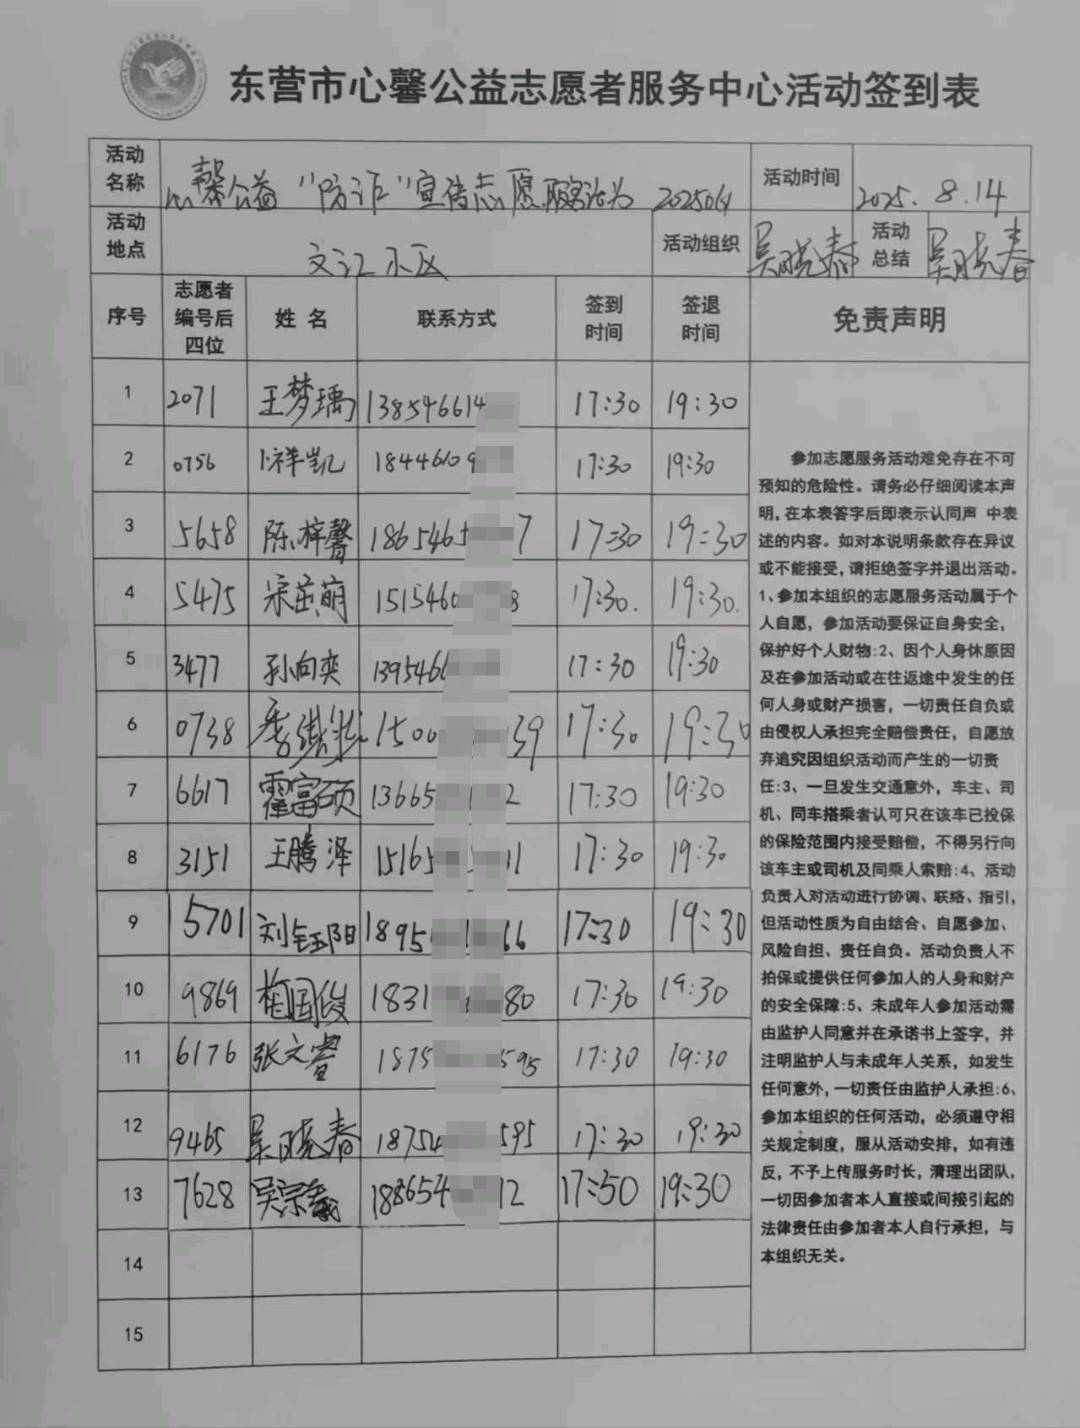 东营市心馨公益志愿者服务中心活动签到表
活动名称 心馨公益“防诈”宣传志愿服务活动 活动时间 2025.8.14
活动地点 文汇小区 活动组织 吴晓春 活动总结 吴晓春
序号 志愿者编号后四位 姓名 联系方式 签到时间 签退时间 免责声明
1 2071 王梦瑀 138546614 17:30 19:30
2 0756 祥凯 18446109 17:30 19:30
3 5658 陈梓馨 1865465 7 17:30 19:30
4 5475 宋萌 151546 8 17:30. 19:30.
5 3477 孙向奕 139546 17:30 19:30
6 0738 1500 39 17:30 19:30
7 6617 霍富硕 13665 2 17:30 19:30
8 3151 王腾泽 15165 11 17:30 19:30
9 15701 刘钰阳 1895 66 17:30 19:30
10 9869 国俊 1831 80 17:30 19:30
11 6176 张文睿 1875 595 17:30 19:30
12 9465 吴晓春 18754 595 17:30 19:30
13 7628 吴宗羲 18654 12 17:50 19:30
14
15
参加志愿服务活动难免存在不可
预知的危险性。请务必仔细阅读本声
明,在本表签字后即表示认同声 中表
述的内容。如对本说明条款存在异议
或不能接受,请拒绝签字并退出活动。
1、参加本组织的志愿服务活动属于个
人自愿，参加活动要保证自身安全，
保护好个人财物;2、因个人身休原因
及在参加活动或在往返途中发生的任
何人身或财产损害，一切责任自负或
由侵权人承担完全赔偿责任，自愿放
弃追究因组织活动而产生的一切责
任;3、一旦发生交通意外，车主、司
机、同车搭乘者认可只在该车已投保
的保险范围内接受赔偿，不得另行向
该车主或司机及同乘人索赔;4、活动
负责人对活动进行协调、联络、指引，
但活动性质为自由结合、自愿参加、
风险自担、责任自负。活动负责人不
拍保或提供任何参加人的人身和财产
的安全保障;5、未成年人参加活动需
由监护人同意并在承诺书上签字，并
注明监护人与未成年人关系，如发生
任何意外,一切责任由监护人承担;6、
参加本组织的任何活动，必须遵守相
关规定制度，服从活动安排，如有违
反，不予上传服务时长，清理出团队，
一切因参加者本人直接或间接引起的
法律责任由参加者本人自行承担，与
本组织无关。